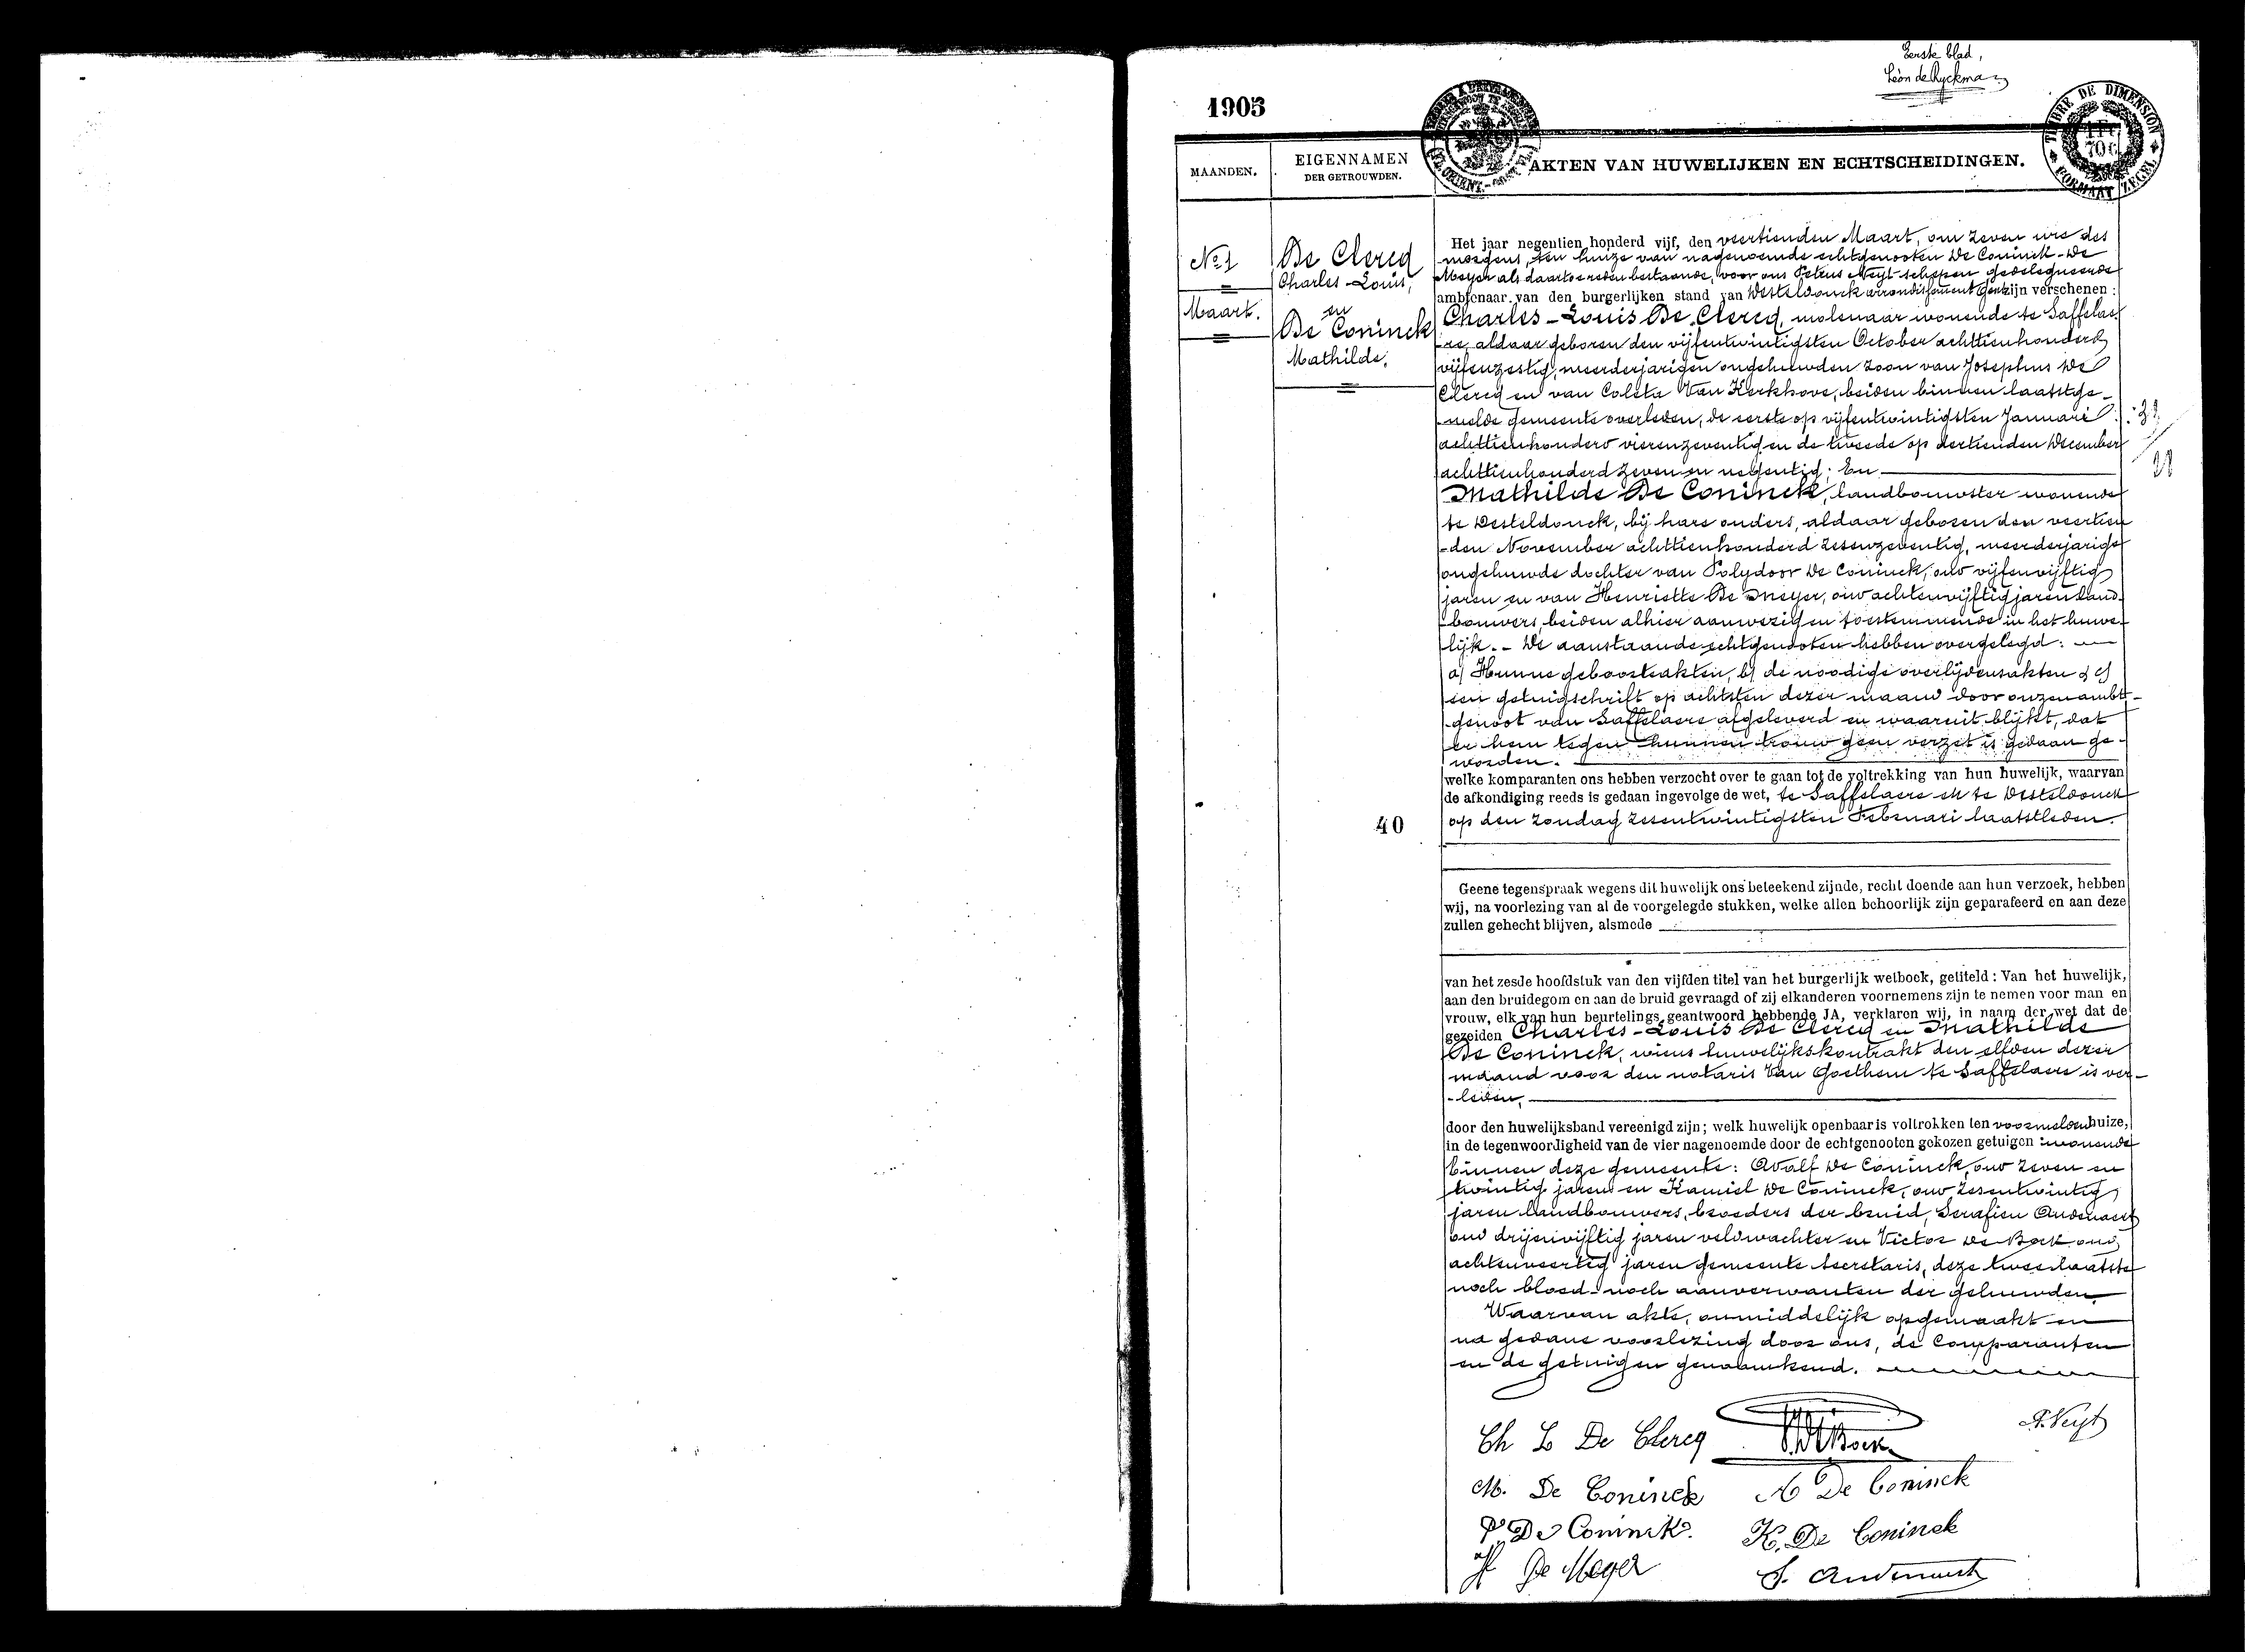 Eerste blad,
Léon de Ryckman
1905
TIMBRE DE DIMENSION
1 Fr
70 c
FORMAAT ZEGEL
MAANDEN.
EIGENNAMEN
DER GETROUWDEN.
AKTEN VAN HUWELIJKEN EN ECHTSCHEIDINGEN.
No 1
Maart.
De Clercq
Charles-Louis,
en
De Coninck
Mathilde.
Het jaar negentien honderd vijf, den veertienden Maart, om zeven ure des
morgens, ten huize van nagenoemde echtgenooten De Coninck-De
Meyer als daartoe reden bestaande, voor ons Petrus Neyt schepen gedelegueerde
ambtenaar van den burgerlijken stand van Desteldonck arrondissement Gent zijn verschenen :
Charles-Louis De Clercq, molenaar wonende te Saffelae-
re, aldaar geboren den vijfentwintigsten October achttienhonderd
vijfenzestig, meerderjarigen ongehuwden zoon van Josephus De
Clercq en van Coleta Van Kerkhove, beiden binnen laatstge-
melde gemeente overleden, de eerste op vijfentwintigsten Januari
achttienhonderd vierenzeventig en de tweede op dertienden December
achttienhonderd zeven en negentig; En
Mathilde De Coninck, landbouwster wonende
te Desteldonck, bij hare ouders, aldaar geboren den veertien
-den November achttienhonderd zesenzeventig, meerderjarige
ongehuwde dochter van Polydoor De Coninck, oud vijfenvijftig
jaren en van Henriette De Meyer, oud achtenvijftig jaren land-
bouwers, beiden alhier aanwezig en toestemmende in het huwe-
lijk. - De aanstaande echtgenooten hebben overgelegd :
a) Hunne geboorteakten, b) de noodige overlijdensakten & c)
een getuigschrift op achtsten dezer maand door onzen ambt-
genoot van Saffelaere afgeleverd en waaruit blijkt, dat
er hem tegen hunnen trouw geen verzet is gedaan ge-
worden.
welke komparanten ons hebben verzocht over te gaan tot de voltrekking van hun huwelijk, waarvan
de afkondiging reeds is gedaan ingevolge de wet, te Saffelaere en te Desteldonck
40
op den zondag zesentwintigsten Februari laatstleden.
Geene tegenspraak wegens dit huwelijk ons beteekend zijnde, recht doende aan hun verzoek, hebben
wij, na voorlezing van al de voorgelegde stukken, welke allen behoorlijk zijn geparafeerd en aan deze
zullen gehecht blijven, alsmede
van het zesde hoofdstuk van den vijfden titel van het burgerlijk wetboek, getiteld : Van het huwelijk,
aan den bruidegom en aan de bruid gevraagd of zij elkanderen voornemens zijn te nemen voor man en
vrouw, elk van hun beurtelings geantwoord hebbende JA, verklaren wij, in naam der wet dat de
gezeiden Charles-Louis De Clercq en Mathilde
De Coninck, wiens huwelijkskontrakt den elfden dezer
maand voor den notaris Van Goethem te Saffelaere is ver-
-leden,
door den huwelijksband vereenigd zijn; welk huwelijk openbaar is voltrokken ten voormelden huize,
in de tegenwoordigheid van de vier nagenoemde door de echtgenooten gekozen getuigen : wonende
binnen deze gemeente : Adolf De Coninck, oud zeven en
twintig jaren en Kamiel De Coninck, oud zesentwintig
jaren landbouwers, broeders der bruid, Serafien Audenaert
oud drijenvijftig jaren veldwachter en Victor De Bock oud
achtenveertig jaren gemeente secretaris, deze twee laatste
noch bloed- noch aanverwanten der gehuwden.
Waarvan akte, onmiddelijk opgemaakt en
na gedane voorlezing door ons, de Comparanten
en de getuigen genaamkend.
Ch L De Clercq
V. De Bock
P. Neyt
M. De Coninck
A De Coninck
P. De Coninck.
K. De Coninck
H De Meyer
S. Audenaert